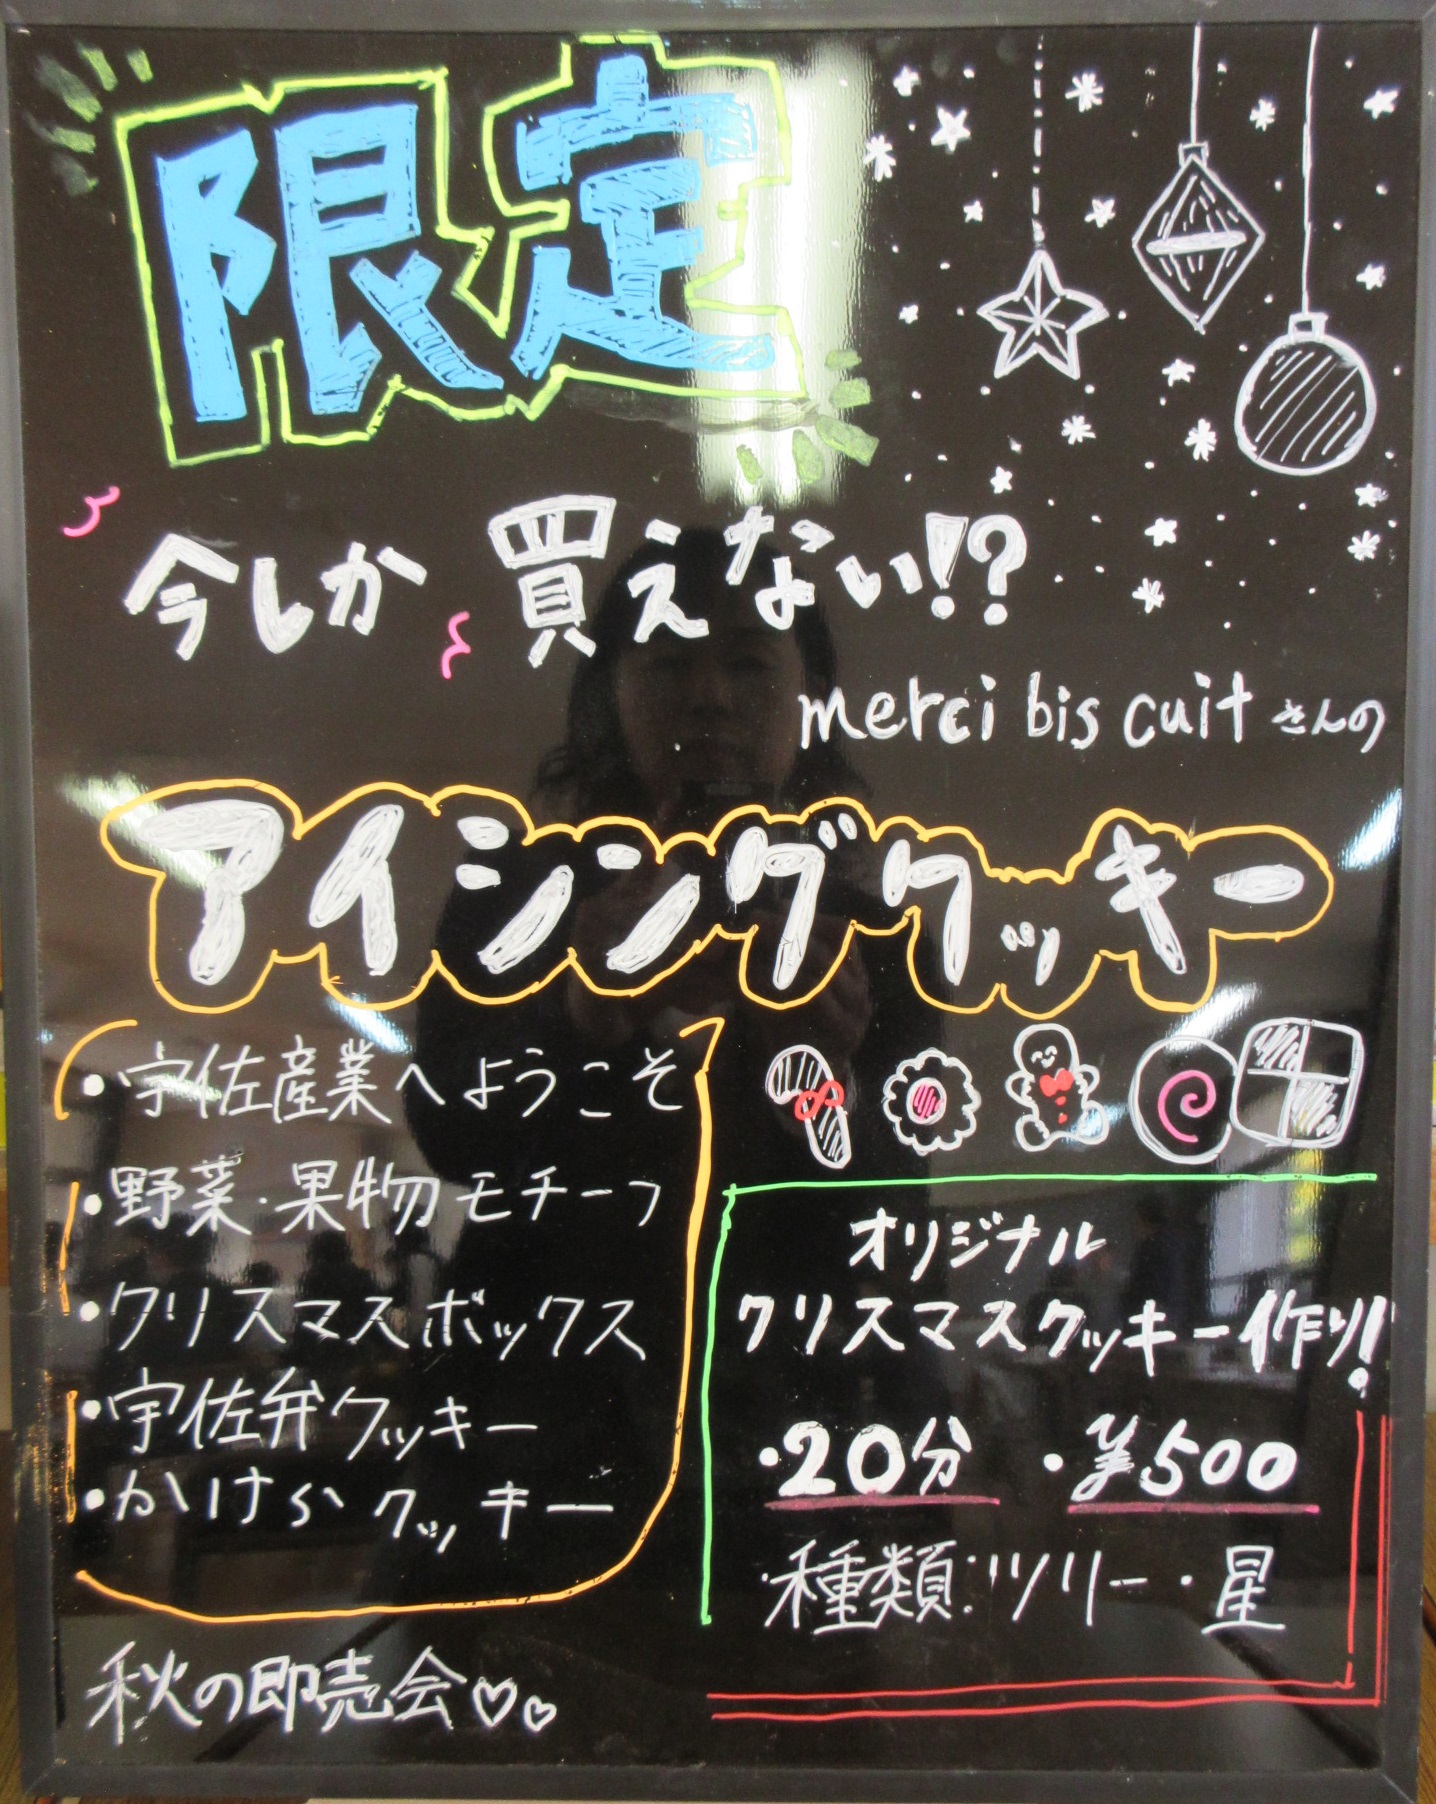 限定
今しか買えない!?
merci bis cuit さんの
アイシングクッキー
・宇佐産業へようこそ
・野菜・果物モチーフ
・クリスマスボックス
・宇佐弁クッキー
・かけらクッキー
オリジナル
クリスマスクッキー作り!
・20分 ・¥500
・種類:ツリー・星
秋の即売会♡♡